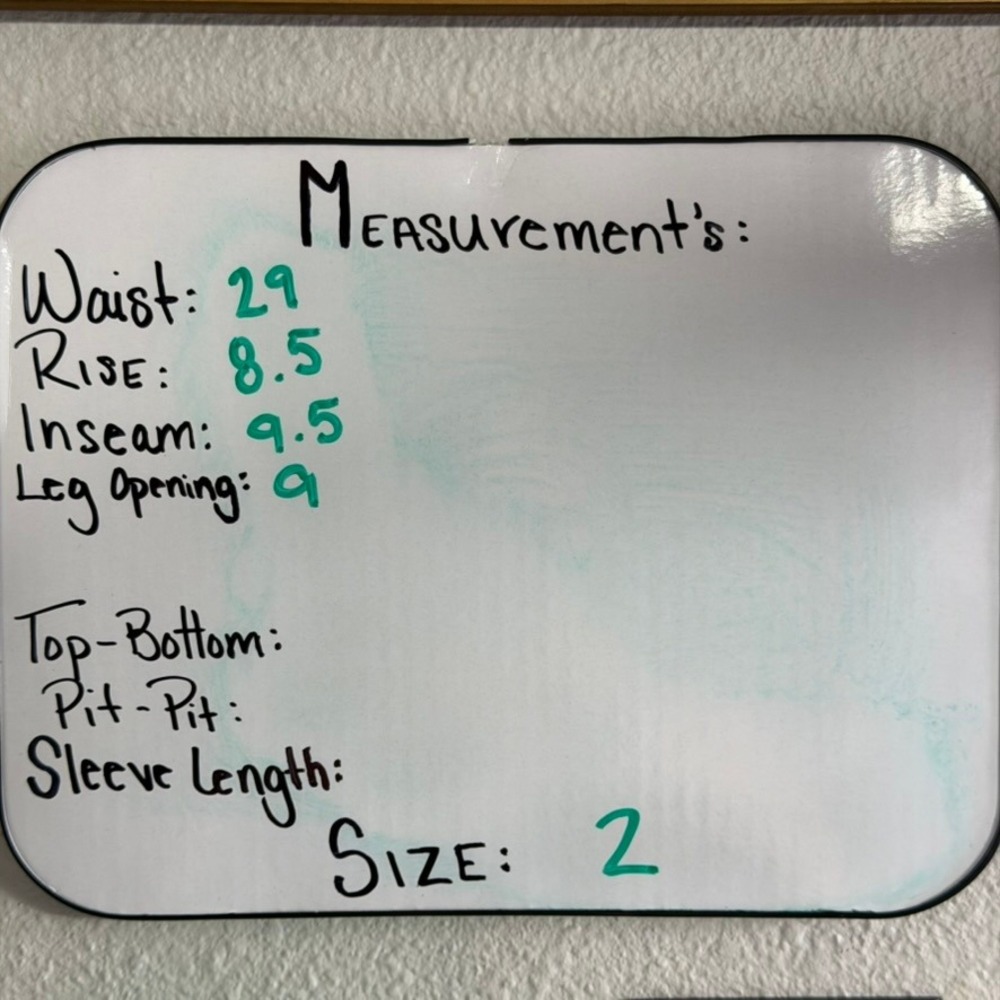 Measurement's:
Waist: 29
Rise: 8.5
Inseam: 9.5
Leg Opening: 9
Top-Bottom:
Pit-Pit:
Sleeve Length:
Size: 2